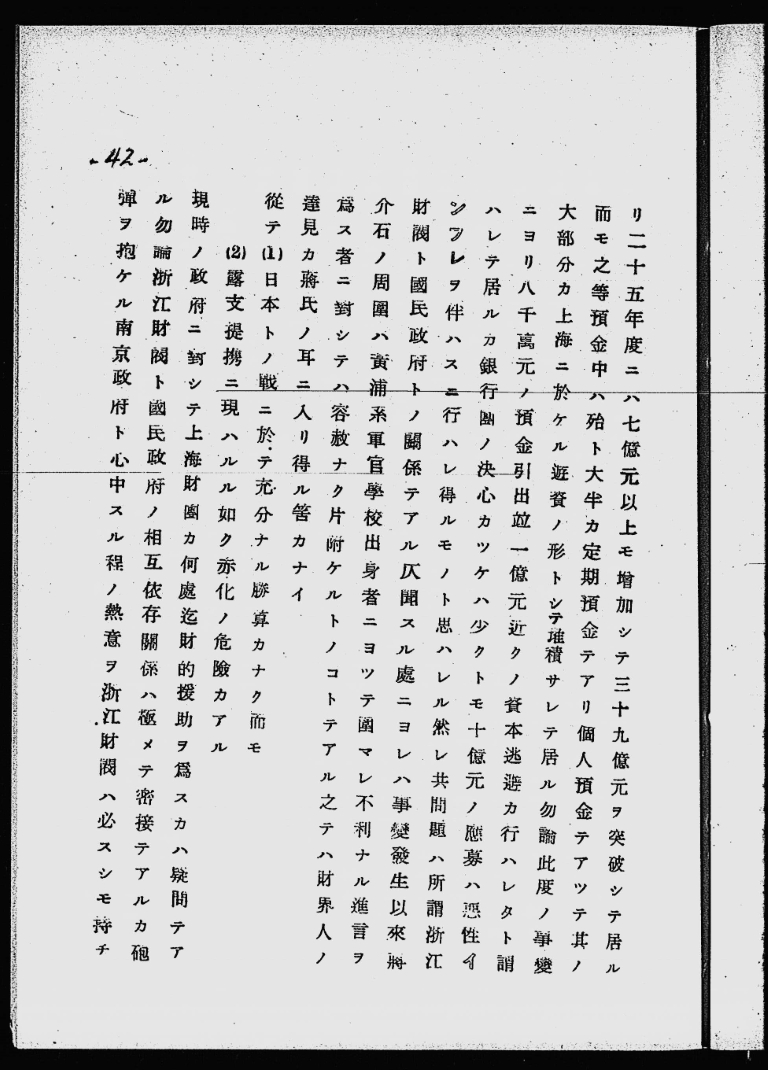 - 42 -
リ二十五年度ニハ七億元以上モ增加シテ三十九億元ヲ突破シテ居ル
而モ之等預金中ハ殆ト大半カ定期預金テアリ個人預金テアツテ其ノ
大部分カ上海ニ於ケル遊資ノ形トシテ堆積サレテ居ル勿論此度ノ事變
ニヨリ八千萬元ノ預金引出竝一億元近クノ資本逃避カ行ハレタト謂
ハレテ居ルカ銀行團ノ決心カツケハ少クトモ十億元ノ應募ハ惡性イ
ンフレヲ伴ハスニ行ハレ得ルモノト思ハレル然レ共問題ハ所謂浙江
財閥ト國民政府トノ關係テアル仄聞スル處ニヨレハ事變發生以來蔣
介石ノ周圍ハ黃浦系軍官學校出身者ニヨツテ圍マレ不利ナル進言ヲ
爲ス者ニ對シテハ容赦ナク片附ケルトノコトテアル之テハ財界人ノ
達見カ蔣氏ノ耳ニ入リ得ル筈カナイ
從テ(1)日本トノ戰ニ於テ充分ナル勝算カナク而モ
(2)露支提携ニ現ハルル如ク赤化ノ危險カアル
現時ノ政府ニ對シテ上海財團カ何處迄財的援助ヲ爲スカハ疑問テア
ル勿論浙江財閥ト國民政府ノ相互依存關係ハ極メテ密接テアルカ砲
彈ヲ抱ケル南京政府ト心中スル程ノ熱意ヲ浙江財閥ハ必スシモ持チ